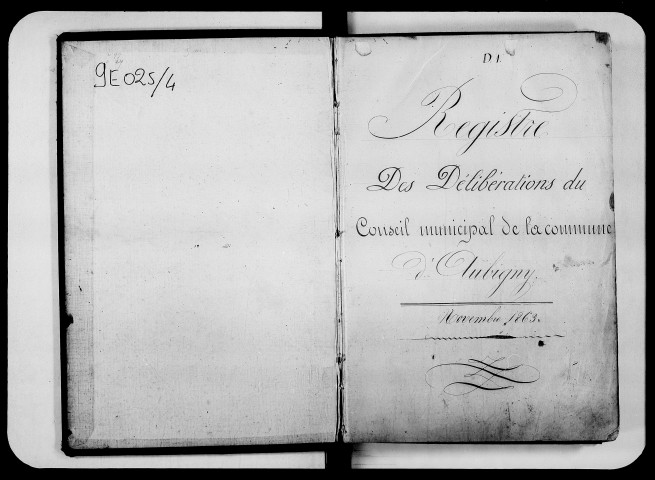 9E025/4
D1
Registre
Des Délibérations du
Conseil municipal de la commune
d'Aubigny
Novembre 1863.